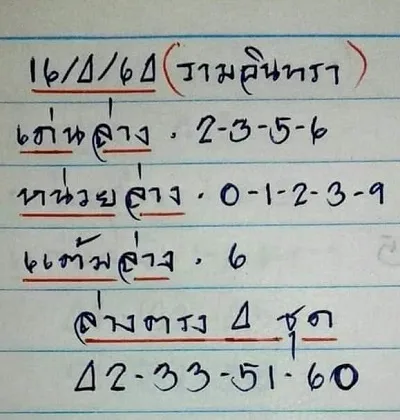 16/4/64 (รามอินทรา)
เด่นล่าง . 2-3-5-6
หน่วยล่าง . 0-1-2-3-9
แต้มล่าง . 6
ล่างตรง 4 ชุด
42-33-51-60